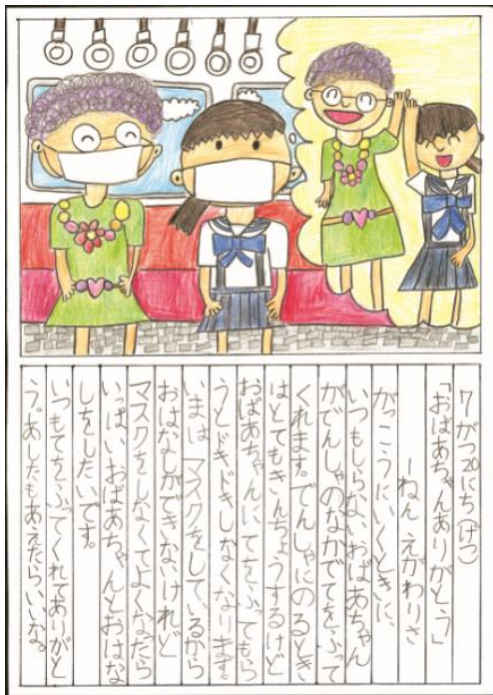 7がつ20にち(げつ)
「おばあちゃんありがとう」
一ねん えがわりさ
がっこうにいくときに、
いつもしらないおばあちゃん
がでんしゃのなかでてをふって
くれます。でんしゃにのるとき
はとてもきんちょうするけど
おばあちゃんにてをふってもら
うとドキドキしなくなります。
いまは マスクをしているから
おはなしができないけれど
マスクをしなくてよくなったら
いっぱいおばあちゃんとおはな
しをしたいです。
いつもてをふってくれてありがと
う。あしたもあえたらいいな。